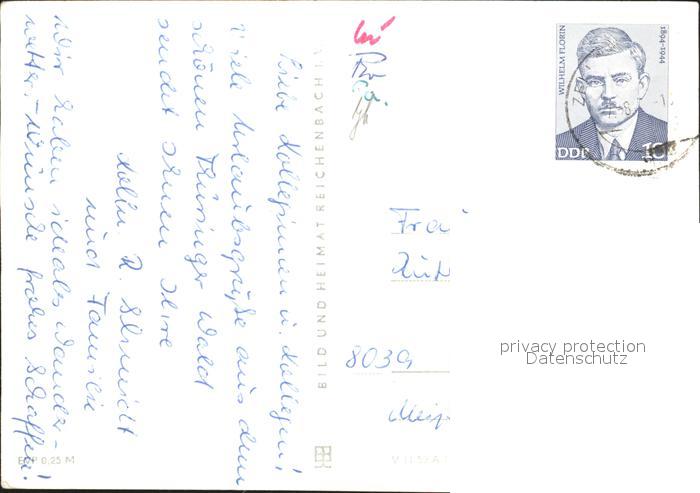 Liebe Kolleginnen u. Kollegen!
Viele Urlaubsgrüße aus dem
schönen Thüringer Wald
sendet Ihnen Ihre
Kolln R. Schmidt
und Familie
Wir haben ideales Wander-
wetter, - Wünsche frohes Schaffen!
EVP 0,25 M
BILD UND HEIMAT REICHENBACH I. V
WILHELM FLORIN
1894-1944
DDR
10
Frau
8039
privacy protection
Datenschutz